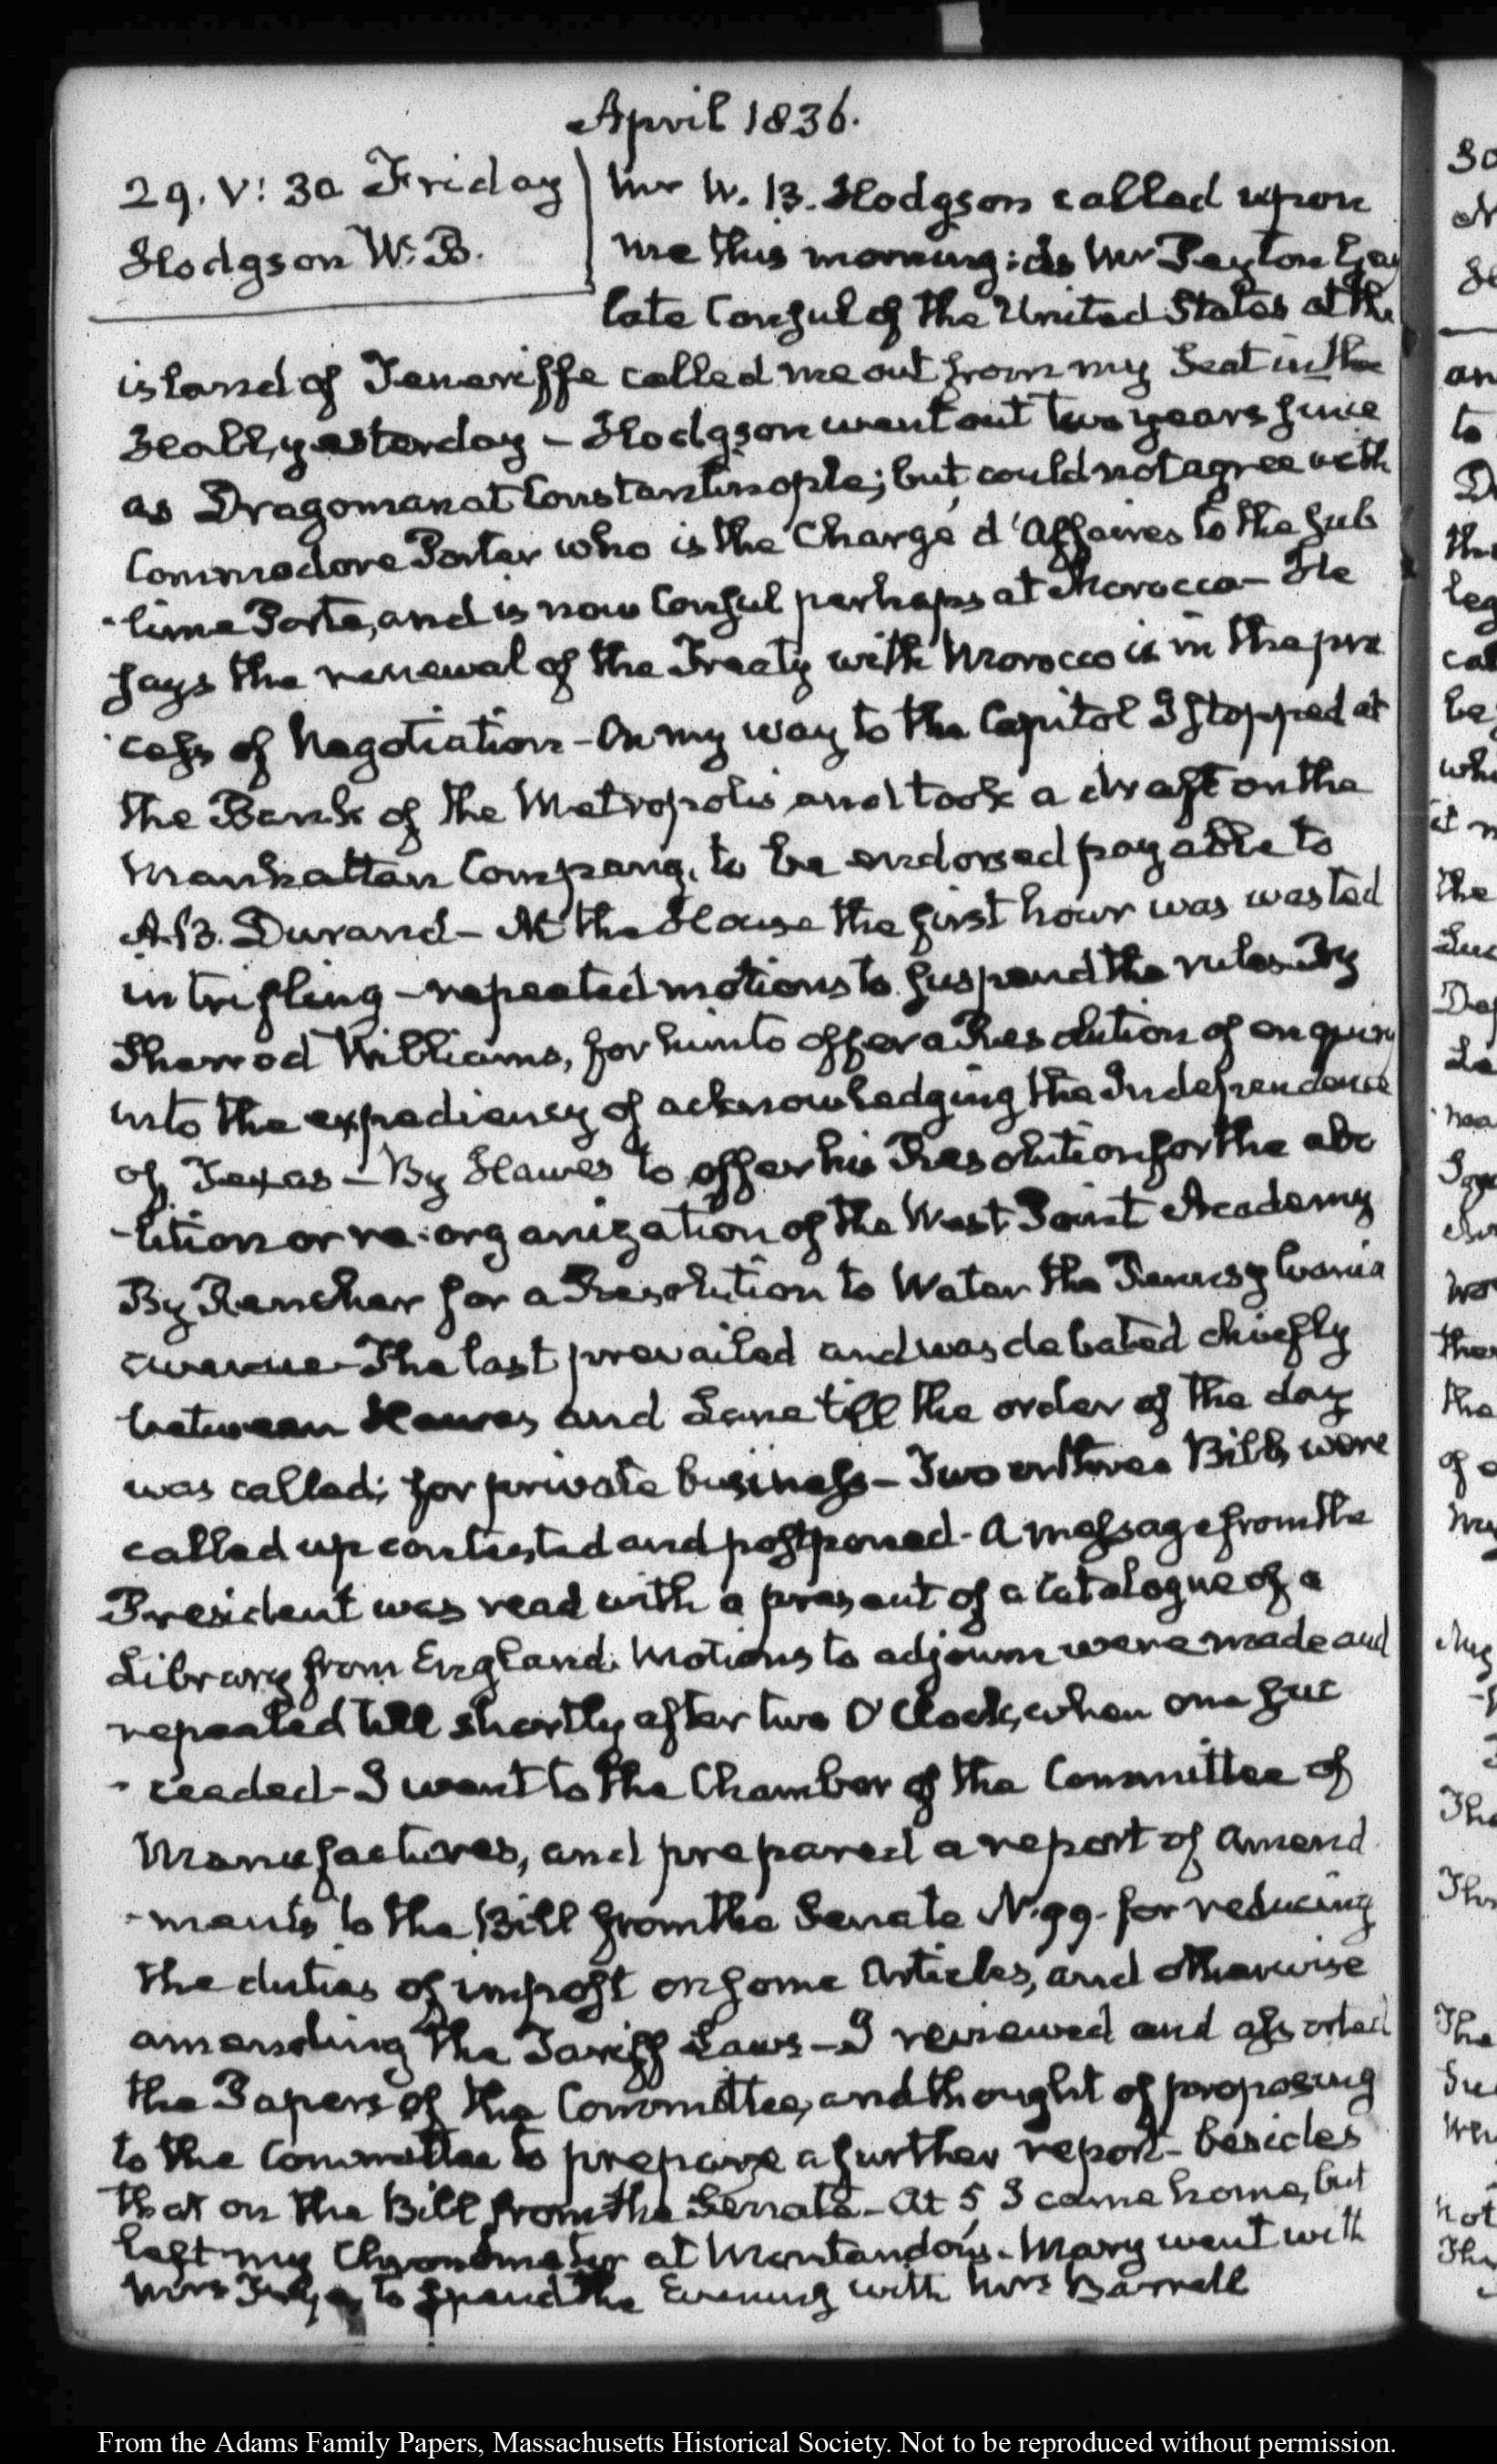 April 1836.
29. V: 30 Friday
Hodgson W. B.
Mr W. B. Hodgson called upon
me this morning: as Mr Peyton Gay
late Consul of the United States at the
island of Teneriffe called me out from my Seat in the
Hall, yesterday – Hodgson went out two years since
as Dragoman at Constantinople; but could not agree with
Commodore Porter who is the Chargé d'Affaires to the Sub
-lime Porte, and is now Consul perhaps at Morocco – He
says the renewal of the Treaty with Morocco is in the pro
-cess of Negotiation – On my way to the Capitol I stopped at
the Bank of the Metropolis and took a draft on the
Manhattan Company, to be endorsed payable to
A. B. Durand – At the House the first hour was wasted
in trifling – repeated motions to suspend the rules By
Sherrod Williams, for him to offer a Resolution of enquiry
into the expediency of acknowledging the Independence
of Texas – By Hawes to offer his Resolution for the abo
-lition or re-organization of the West Point Academy
By Rencher for a Resolution to Water the Pennsylvania
avenue – The last prevailed and was debated chiefly
between Hawes and Lane till the order of the day
was called; for private business – Two or three Bills were
called up contested and postponed – A message from the
President was read with a present of a Catalogue of a
Library from England. Motions to adjourn were made and
repeated till shortly after two O'Clock, when one suc
-ceeded – I went to the Chamber of the Committee of
Manufactures, and prepared a report of Amend
-ments to the Bill from the Senate N. 99. for reducing
the duties of impost on some Articles, and otherwise
amending the Tariff Laws – I reviewed and assorted
the Papers of the Committee, and thought of proposing
to the Committee to prepare a further report – besides
that on the Bill from the Senate – At 5 I came home, but
left my Chronometer at Montandon's. Mary went with
Mrs to spend the Evening with Mrs Barrell
From the Adams Family Papers, Massachusetts Historical Society. Not to be reproduced without permission.